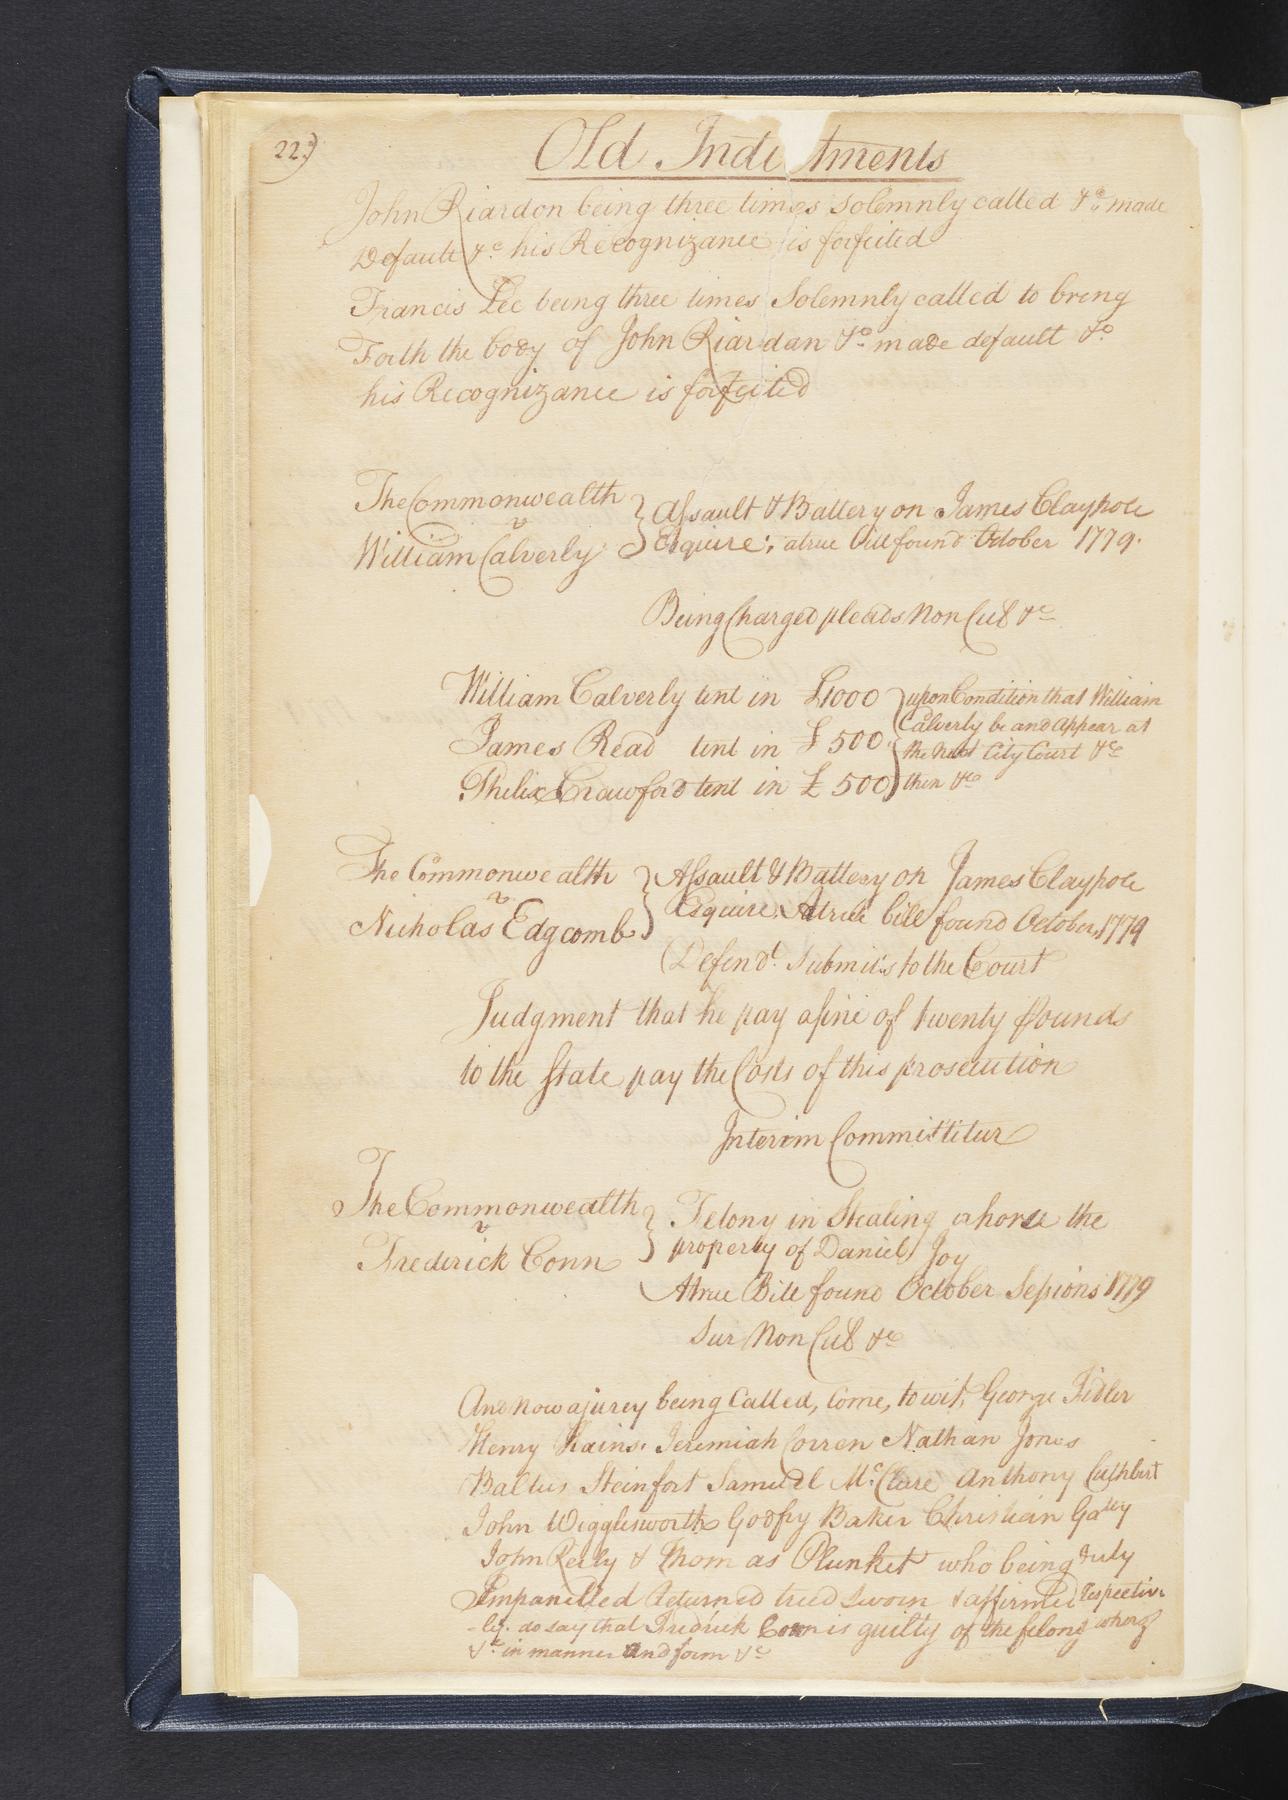 22.)
Old Indictments
John Riardon being three times Solemnly called &c. made
Default &c. his Recognizance is forfeited
Francis Lee being three times Solemnly called to breng
Forth the body of John Riardan &c. made default &c.
his Recognizance is forfeited
The Commonwealth
v
William Calverly
Assault & Battery on James Claypole
Esquire, atrue bill found October 1779.
Being Charged pleads Non Cul &c
William Calverly tent in £1000
James Read tent in £500
Philix Crawford tent in £500
upon Condition that William
Calverly be and Appear at
the Next City Court &c
then &c
The Commonwealth
v
Nicholas Edgcomb
Assault & Battery on James Claypole
Esquire. Atrue bill found October, 1779
Defendt. submits to the Court
Judgment that he pay afine of twenty Pounds
to the State pay the Costs of this prosecution
Interim Committitur
The Commonwealth
v
Frederick Conn
Felony in Stealing ahorse the
property of Daniel Joy
Atrue Bill found October Sessions 1779
Sur Non Cul &c
And now ajurey being Called, Come, to wit, George Fidler
Henry Kains. Jeremiah Corren Nathan Jones
Baltus Steinfort Samuel Mc.Clure Anthony Cuthbert
John Wigglesworth Godfry Baker Christian Gally
John Reily & Thom as Plunket who being duly
Impanelled Returned tried sworn & affirmed respective
-ly. do say that Fredrick Conn is guilty of the felony wherof
&c in manner and form &c